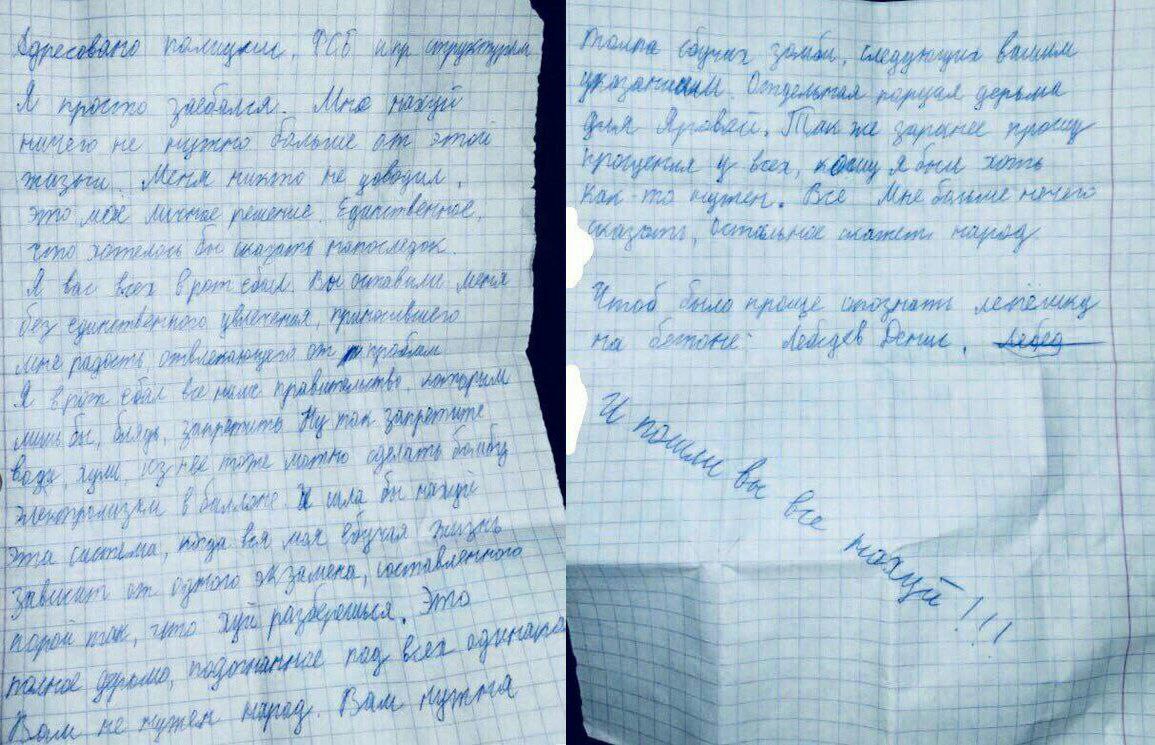 Адресовано полиции, ФСБ и пр структурам
Я просто заебался. Мне нахуй
ничего не нужно больше от этой
жизни. Меня никто не доводил,
это моё личное решение. Единственное,
что хотелось бы сказать напоследок.
Я вас всех в рот ебал. Вы оставили меня
без единственного увлечения, приносившего
мне радость, отвлекающего от проблем
Я в рот ебал все наше правительство, которым
лишь бы, блядь, запретить Ну так запретите
воду хули. Из нее тоже можно сделать бомбу
электролизом в балоне. И шла бы нахуй
эта система, когда вся моя ебучая жизнь
зависит от одного экзамена, составленного
порой так, что хуй разберешься. Это
полное дерьмо, подогнанное под всех одинаково
Вам не нужен народ. Вам нужна
толпа ебучих зомби, следующих вашим
указаниям. Отдельная порция дерьма
для Яровой. Так же заранее прошу
прощения у всех, кому я был хоть
как то нужен. Все Мне больше нечего
сказать, остальное скажет народ
Чтоб было проще опознать лепёшку
на бетоне: Лебедев Денис.
И пошли вы все нахуй!!!